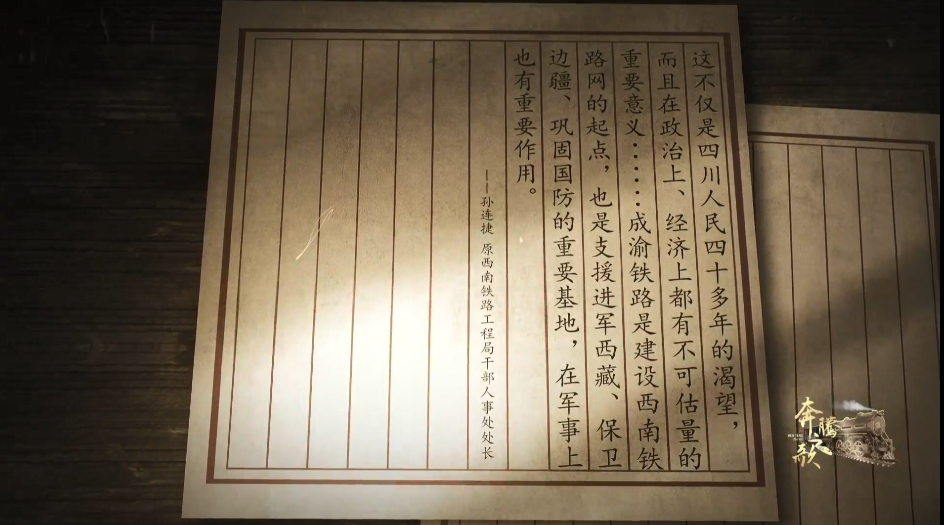 这不仅是四川人民四十多年的渴望，
而且在政治上、经济上都有不可估量的
重要意义······成渝铁路是建设西南铁
路网的起点，也是支援进军西藏、保卫
边疆、巩固国防的重要基地，在军事上
也有重要作用。
——孙连捷 原西南铁路工程局干部人事处处长
奔腾之歌